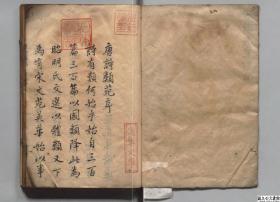 唐詩類苑序
詩有類何始乎始自三百
篇三百篇以國類降此為
昭明氏文選以體類又下
為有宋文苑英華始以事